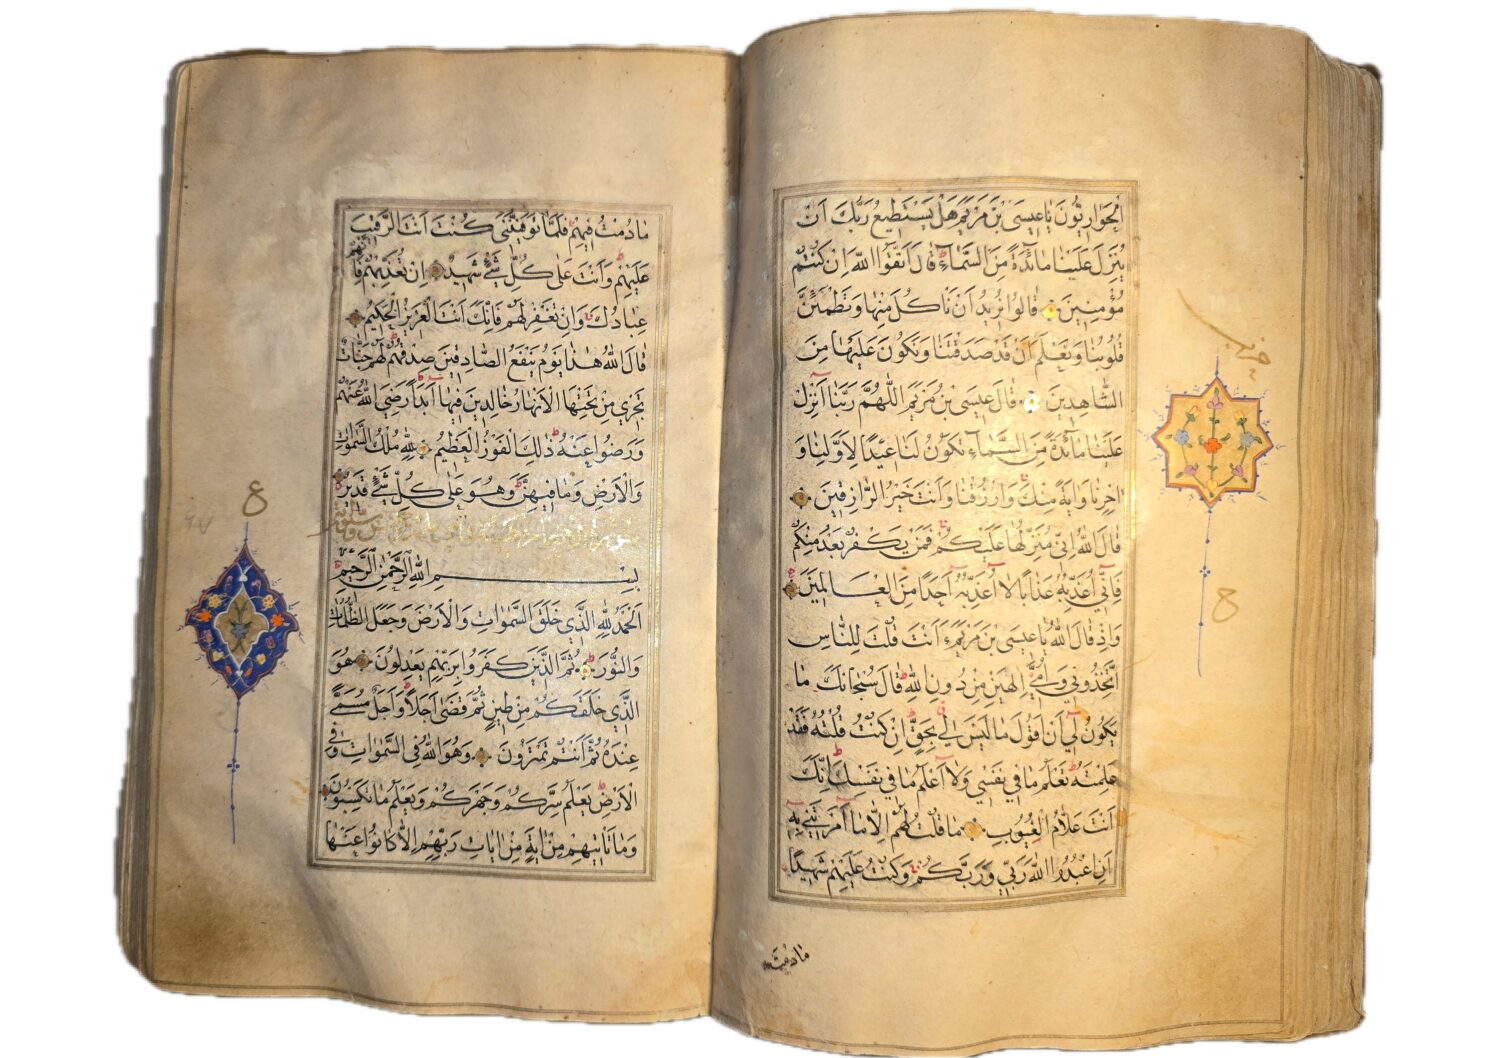 الْحَوَارِيُّونَ يَا عِيسَى بْنَ مَرْيَمَ هَلْ يَسْتَطِيعُ رَبُّكَ اَنْ
يُنَزِّلَ عَلَيْنَا مَائِدَةً مِنَ السَّمَاءِ قَالَ اتَّقُوا اللهَ اِنْ كُنْتُمْ
مُؤْمِنِينَ قَالُوا نُرِيدُ اَنْ نَاْكُلَ مِنْهَا وَتَطْمَئِنَّ
قُلُوبُنَا وَنَعْلَمَ اَنْ قَدْ صَدَقْتَنَا وَنَكُونَ عَلَيْهَا مِنَ
الشَّاهِدِينَ قَالَ عِيسَى بْنُ مَرْيَمَ اللّٰهُمَّ رَبَّنَا اَنْزِلْ
عَلَيْنَا مَائِدَةً مِنَ السَّمَاءِ تَكُونُ لَنَا عِيدًا لِاَوَّلِنَا وَ
اٰخِرِنَا وَاٰيَةً مِنْكَ وَارْزُقْنَا وَاَنْتَ خَيْرُ الرَّازِقِينَ
قَالَ اللهُ اِنِّي مُنَزِّلُهَا عَلَيْكُمْ فَمَنْ يَكْفُرْ بَعْدُ مِنْكُمْ
فَاِنِّي اُعَذِّبُهُ عَذَابًا لَا اُعَذِّبُهُ اَحَدًا مِنَ الْعَالَمِينَ
وَاِذْ قَالَ اللهُ يَا عِيسَى بْنَ مَرْيَمَ ءَاَنْتَ قُلْتَ لِلنَّاسِ
اتَّخِذُونِي وَاُمِّيَ اِلٰهَيْنِ مِنْ دُونِ اللهِ قَالَ سُبْحَانَكَ مَا
يَكُونُ لِي اَنْ اَقُولَ مَا لَيْسَ لِي بِحَقٍّ اِنْ كُنْتُ قُلْتُهُ فَقَدْ
عَلِمْتَهُ تَعْلَمُ مَا فِي نَفْسِي وَلَا اَعْلَمُ مَا فِي نَفْسِكَ اِنَّكَ
اَنْتَ عَلَّامُ الْغُيُوبِ مَا قُلْتُ لَهُمْ اِلَّا مَا اَمَرْتَنِي بِهِ
اَنِ اعْبُدُوا اللهَ رَبِّي وَرَبَّكُمْ وَكُنْتُ عَلَيْهِمْ شَهِيدًا
مَا دُمْتُ
مَا دُمْتُ فِيهِمْ فَلَمَّا تَوَفَّيْتَنِي كُنْتَ اَنْتَ الرَّقِيبَ
عَلَيْهِمْ وَاَنْتَ عَلٰى كُلِّ شَيْءٍ شَهِيدٌ اِنْ تُعَذِّبْهُمْ فَاِنَّهُمْ
عِبَادُكَ وَاِنْ تَغْفِرْ لَهُمْ فَاِنَّكَ اَنْتَ الْعَزِيزُ الْحَكِيمُ
قَالَ اللهُ هٰذَا يَوْمُ يَنْفَعُ الصَّادِقِينَ صِدْقُهُمْ لَهُمْ جَنَّاتٌ
تَجْرِي مِنْ تَحْتِهَا الْاَنْهَارُ خَالِدِينَ فِيهَا اَبَدًا رَضِيَ اللهُ عَنْهُمْ
وَرَضُوا عَنْهُ ذٰلِكَ الْفَوْزُ الْعَظِيمُ لِلّٰهِ مُلْكُ السَّمٰوَاتِ
وَالْاَرْضِ وَمَا فِيهِنَّ وَهُوَ عَلٰى كُلِّ شَيْءٍ قَدِيرٌ
بِسْمِ اللهِ الرَّحْمٰنِ الرَّحِيمِ
اَلْحَمْدُ لِلّٰهِ الَّذِي خَلَقَ السَّمٰوَاتِ وَالْاَرْضَ وَجَعَلَ الظُّلُمَاتِ
وَالنُّورَ ثُمَّ الَّذِينَ كَفَرُوا بِرَبِّهِمْ يَعْدِلُونَ هُوَ
الَّذِي خَلَقَكُمْ مِنْ طِينٍ ثُمَّ قَضٰى اَجَلًا وَاَجَلٌ مُسَمًّى
عِنْدَهُ ثُمَّ اَنْتُمْ تَمْتَرُونَ وَهُوَ اللهُ فِي السَّمٰوَاتِ وَفِي
الْاَرْضِ يَعْلَمُ سِرَّكُمْ وَجَهْرَكُمْ وَيَعْلَمُ مَا تَكْسِبُونَ
وَمَا تَاْتِيهِمْ مِنْ اٰيَةٍ مِنْ اٰيَاتِ رَبِّهِمْ اِلَّا كَانُوا عَنْهَا